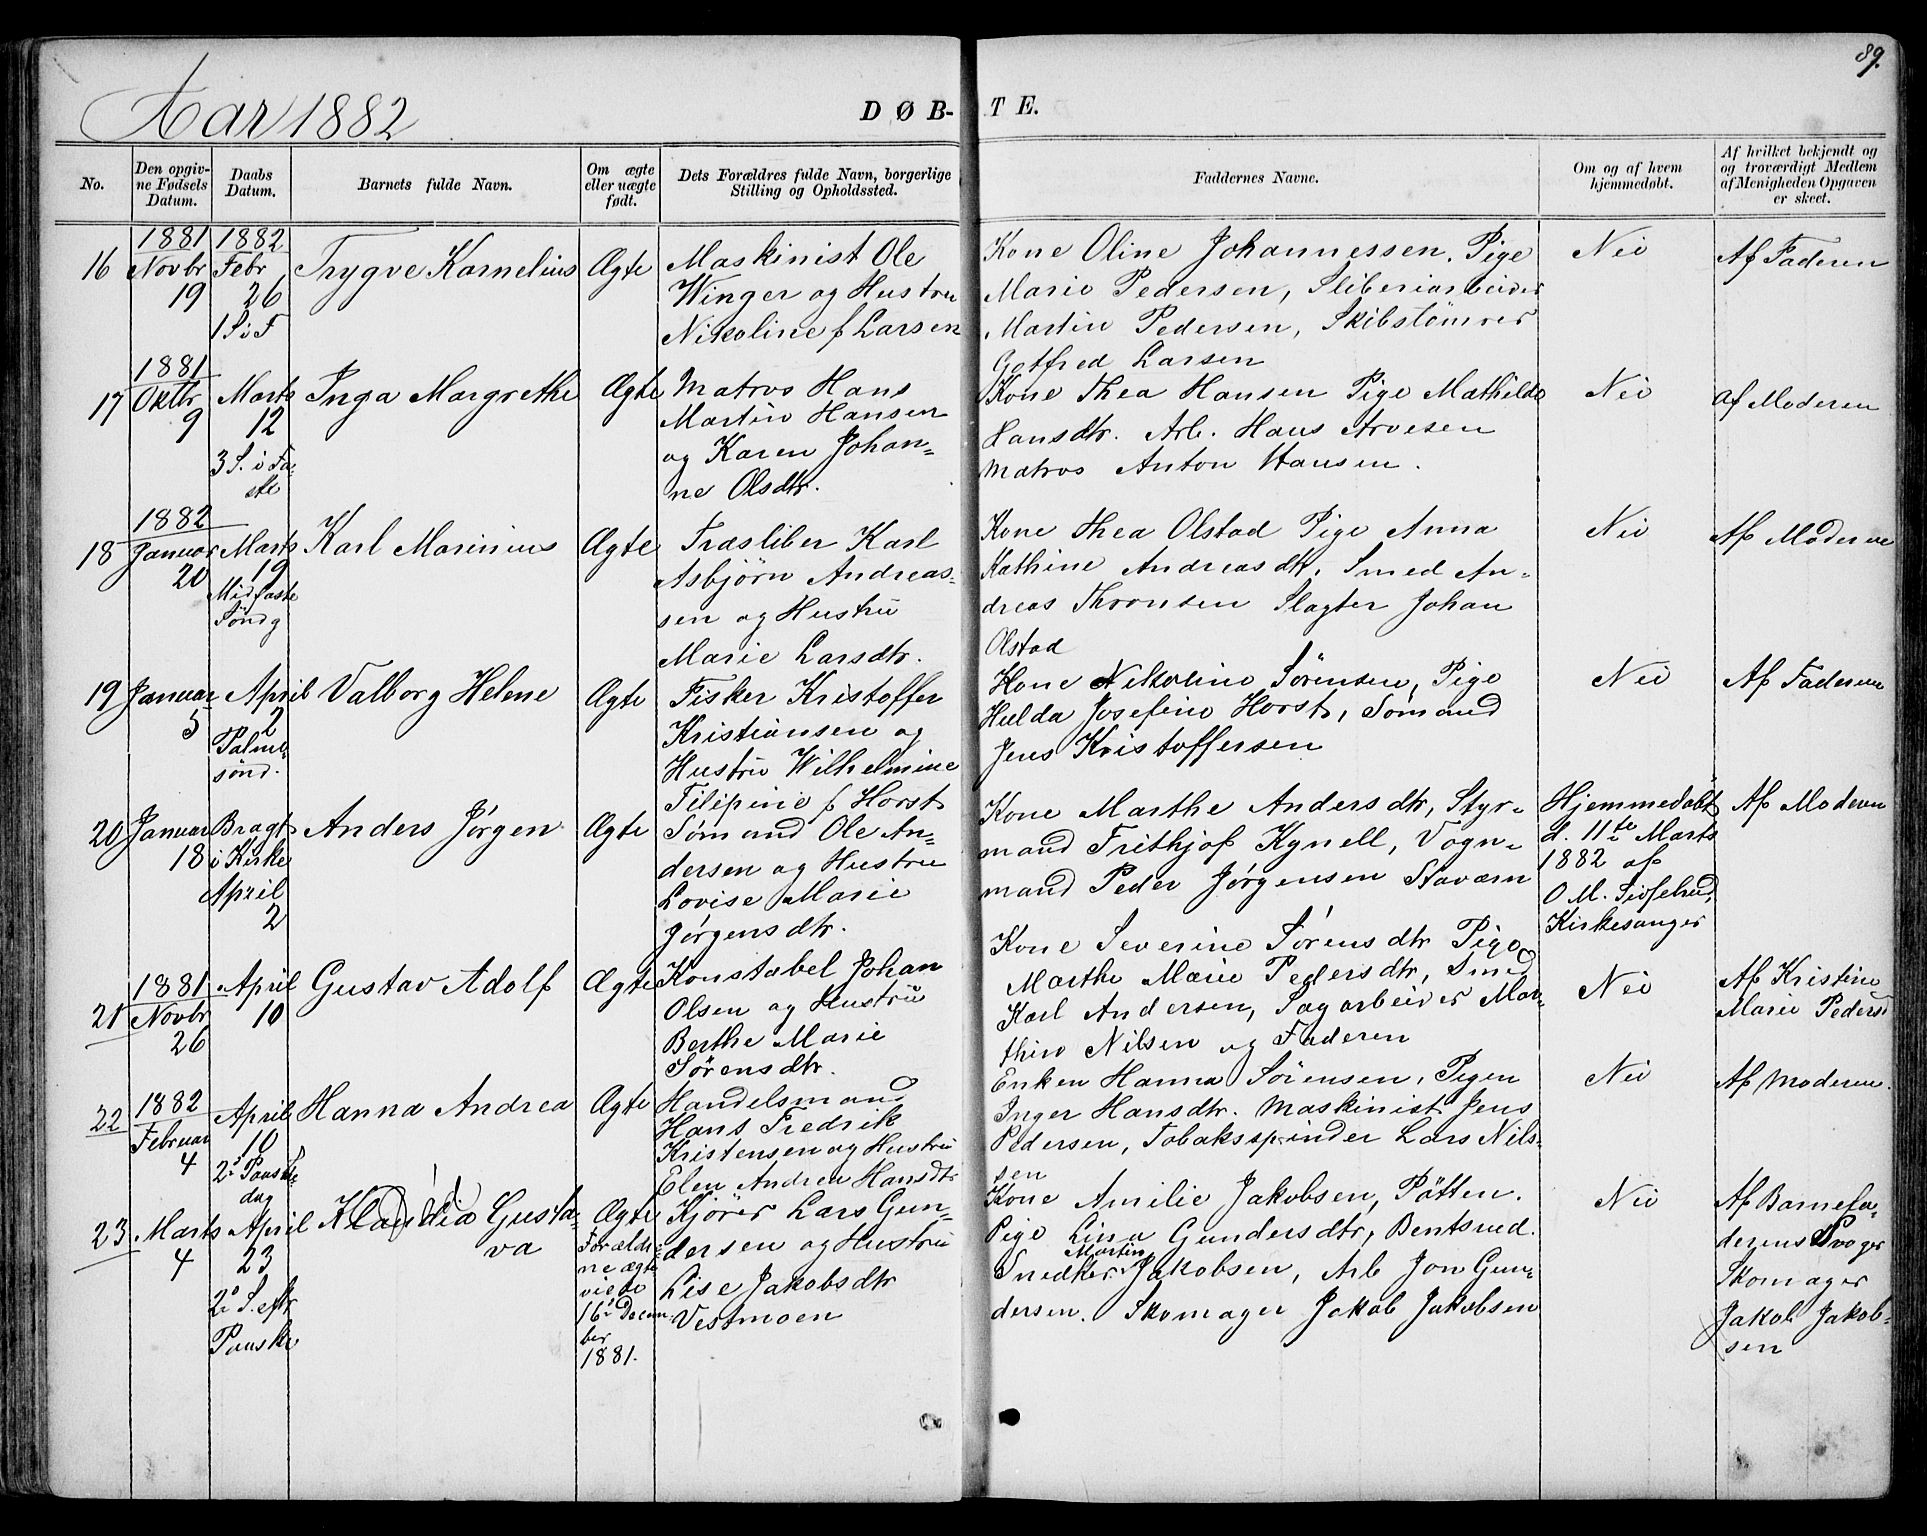 89.
Aar 1882
DØB-TE.
No.
Den opgiv-
ne Fødsels
Datum.
Daabs
Datum.
Barnets fulde Navn.
Om ægte
eller uægte
født.
Dets Forældres fulde Navn, borgerlige
Stilling og Opholdssted.
Faddernes Navne.
Om og af hvem
hjemmedøbt.
Af hvilket bekjendt og
og troværdigt Medlem
af Menigheden Opgaven
er skeet.
16
1881
Novbr
19
1882
Febr
26
1 S i F
Trygve Kornelius
Ægte
Maskinist Ole
Winger og Hustru
Nikoline f Larsen
Kone Oline Johannessen, Pige
Marie Pedersen, Sliberiarbeider
Martin Pedersen, Skibstømrer
Gotfred Larsen
Nei
Af Faderen
17
1881
Oktbr
9
Marts
12
3 S. i Fa-
ste
Inga Margrethe
Ægte
Matros Hans
Martin Hansen
og Karen Johan-
ne Olsdtr.
Kone Thea Hansen Pige Mathilde
Hansdtr. Arb. Hans Arvesen
Matros Anton Hansen.
Nei
Af Moderen
18
1882
Januar
20
Marts
19
Midfaste
Søndg
Karl Marinius
Ægte
Træsliber Karl
Asbjörn Andreas-
sen og Hustru
Marie Larsdtr.
Kone Thea Olstad Pige Anna
Kathine Andreasdtr, Smed An-
dreas Thronsen Slagter Johan
Olstad
Nei
Af Moderen
19
Januar
5
April
2
Palme-
sønd.
Valborg Helene
Ægte
Fisker Kristoffer
Kristiansen og
Hustru Wilhelmine
Filipine f Horst
Kone Nikoline Sörensen, Pige
Hulda Josefine Horst, Sömand
Jens Kristoffersen
Nei
Af Faderen
20
Januar
18
Bragt
i Kirke
April
2
Anders Jørgen
Ægte
Sømand Ole An-
dersen og Hustru
Lovise Marie
Jørgensdtr.
Kone Marthe Andersdtr, Styr-
mand Frithjof Kynell, Vogn-
mand Peder Jørgensen Staværn
Hjemmedøbt
d. 11te Marts
1882 af
O M.
Kirkesanger
Af Moderen
21
1881
Novbr
26
April
10
Gustav Adolf
Ægte
Konstabel Johan
Olsen og Hustru
Berthe Marie
Sörensdtr.
Kone Severine Sörensdtr Pige
Marthe Marie Pedersdtr, Smed
Karl Andersen, Sagarbeider Mar-
thin Nilsen og Faderen
Nei
Af Kristine
Marie Pedersd
22
1882
Februar
4
April
10
2 Paaske-
dag
Hanna Andrea
Ægte
Handelsmand
Hans Fredrik
Kristensen og Hustru
Elen Andrea Hansdtr
Enken Hanna Sörensen, Pigen
Inger Hansdtr. Maskinist Jens
Pedersen, Tobaksspinder Lars Nils-
sen
Nei
Af Moderen.
23
Marts
4
April
23
2 S. eftr
Paaske
Klaudia Gusta-
va
Ægte
Forældre-
ne ægte
viede
16 Decem
ber
1881.
Kjører Lars Gun-
dersen og Hustru
Lise Jakobsdtr
Vestmoen
Kone Amilie Jakobsen, Pötten.
Pige Lina Gundersdtr, Bentsrud.
Snedker Martin Jakobsen, Arb Jon Gun-
dersen. Skomager Jakob Jakobsen
Nei
Af Barnefa-
derens Svoger
Skomager
Jakob Jakob-
sen